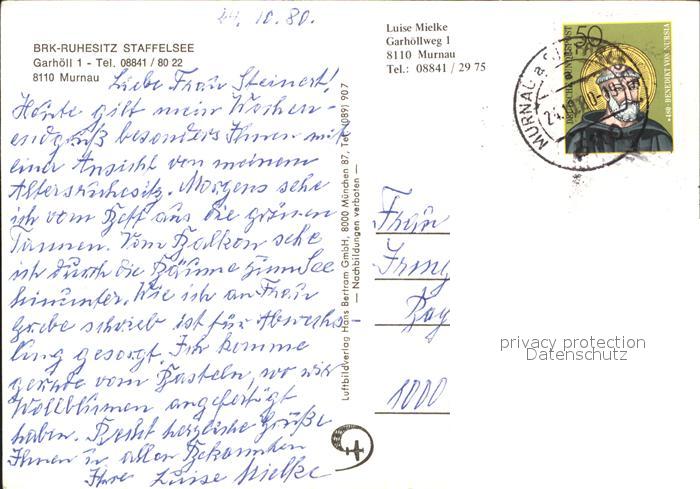 24. 10. 80.
BRK-RUHESITZ STAFFELSEE
Garhöll 1 - Tel. 08841 / 80 22
8110 Murnau
Liebe Frau Steinert!
Heute gilt mein Wochen-
endgruß besonders Ihnen mit
einer Ansicht von meinem
Altersruhesitz. Morgens sehe
ich vom Bett aus die grünen
Tannen. Vom Balkon sehe
ich durch die Bäume zum See
hinunter. Wie ich an Frau
Grebe schrieb ist für Abwechs-
lung gesorgt. Ich komme
gerade vom Basteln, wo wir
Wollblumen angefertigt
haben. Recht herzliche Grüße
Ihnen u. allen Bekannten
Ihre Luise Mielke
Luftbildverlag Hans Bertram GmbH, 8000 München 87, Tel. (089) 90 7
— Nachbildungen verboten —
Luise Mielke
Garhöllweg 1
8110 Murnau
Tel.: 08841 / 29 75
50
DEUTSCHE BUNDESPOST
*480 · BENEDIKT VON NURSIA
MURNAU a.
24.
Frau
Bay
1000
privacy protection
Datenschutz